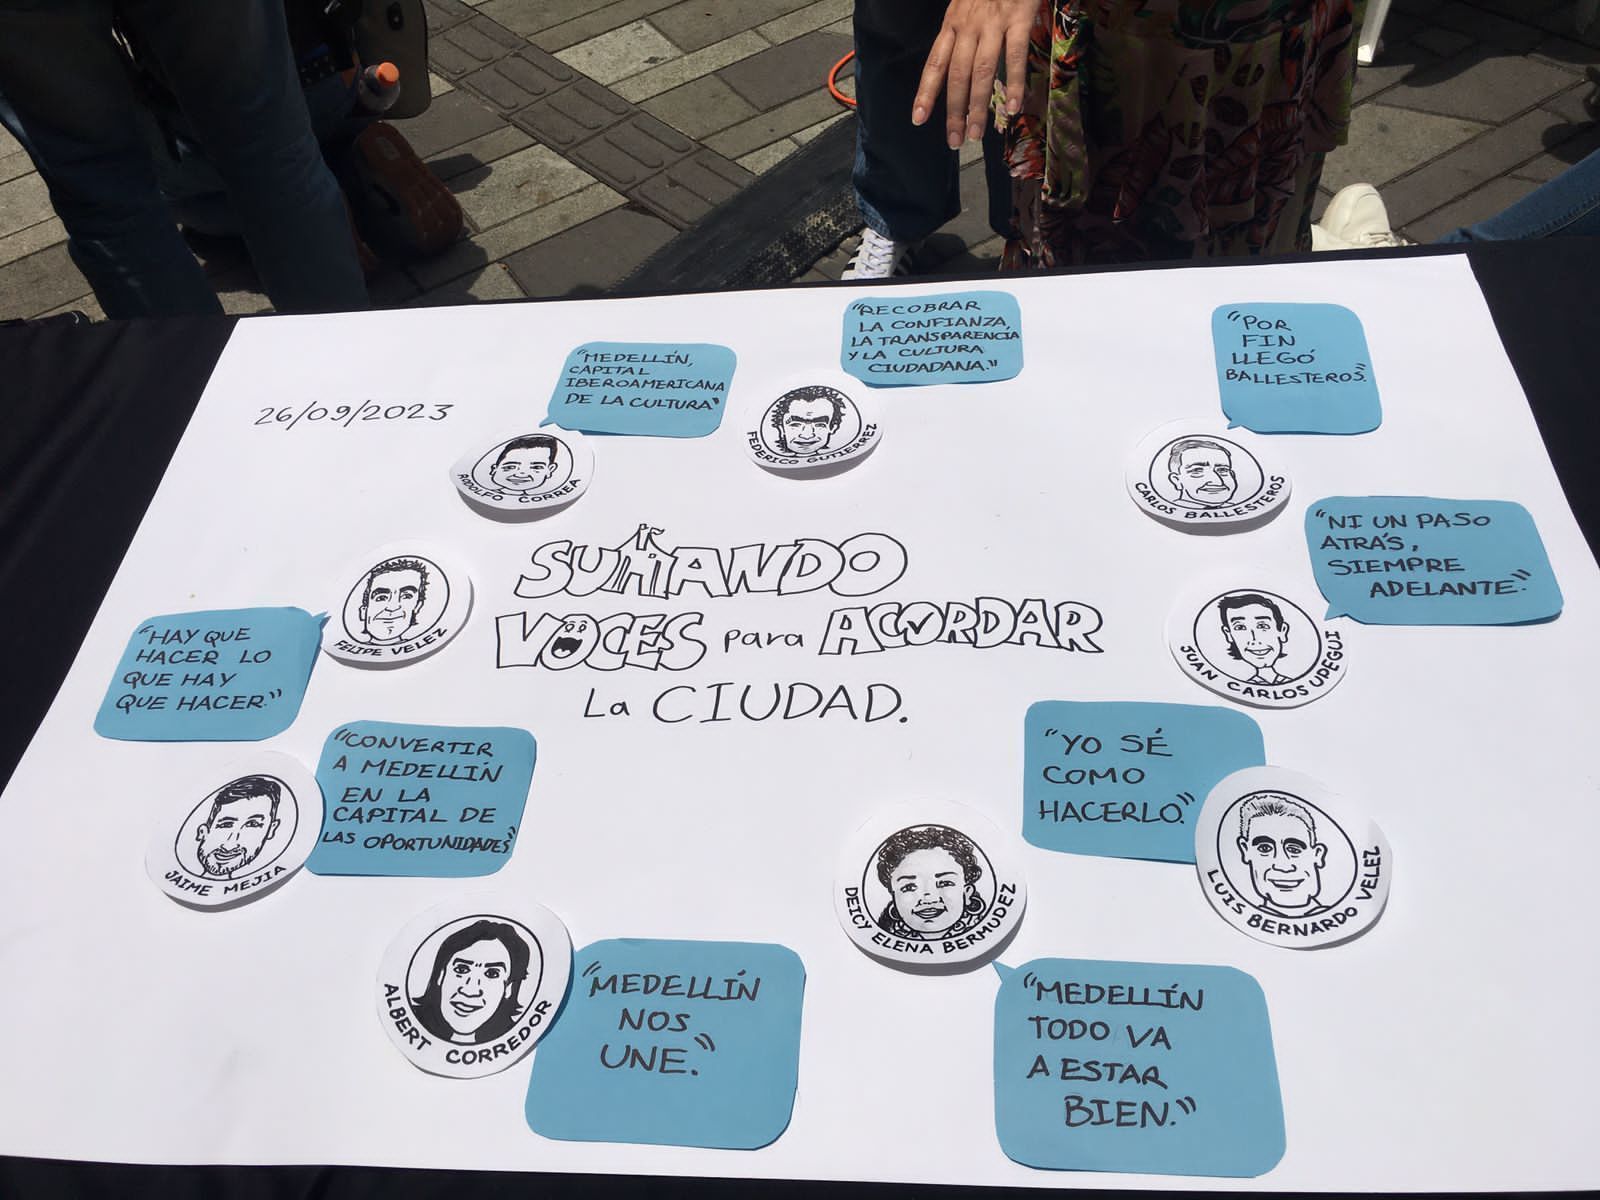 26/09/2023
"MEDELLÍN,
CAPITAL
IBEROAMERICANA
DE LA CULTURA"
RODOLFO CORREA
"RECOBRAR
LA CONFIANZA,
LA TRANSPARENCIA
Y LA CULTURA
CIUDADANA."
FEDERICO GUTIERREZ
"POR
FIN
LLEGÓ
BALLESTEROS."
CARLOS BALLESTEROS
"NI UN PASO
ATRÁS,
SIEMPRE
ADELANTE."
JUAN CARLOS UPEGUI
SUMANDO
VOCES para ACORDAR
La CIUDAD.
"HAY QUE
HACER LO
QUE HAY
QUE HACER."
FELIPE VELEZ
"CONVERTIR
A MEDELLÍN
EN LA
CAPITAL DE
LAS OPORTUNIDADES"
JAIME MEJIA
"YO SÉ
COMO
HACERLO."
LUIS BERNARDO VELEZ
ALBERT CORREDOR
"MEDELLÍN
NOS
UNE."
DEICY ELENA BERMUDEZ
"MEDELLÍN
TODO VA
A ESTAR
BIEN."